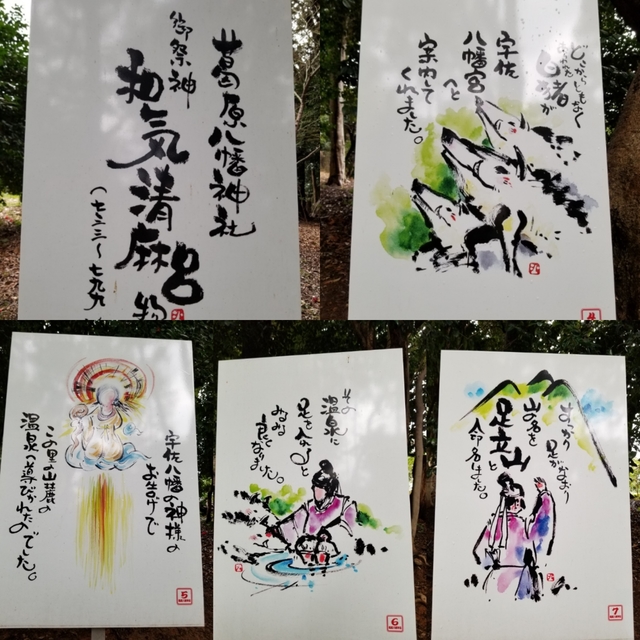 葛原八幡神社
御祭神
和気清麻呂
(七三三〜七九九
どこからともなく
白猪が
宇佐
八幡宮へと
案内して
くれました。
4
宇佐八幡の神様の
おつげで
この里の山麓の
温泉へ導びかれたのでした。
5
その
温泉に
足をつけると
みるみる
良くなりました。
6
すっかり
足がなおり
山名を
足立山と
命名しました。
7